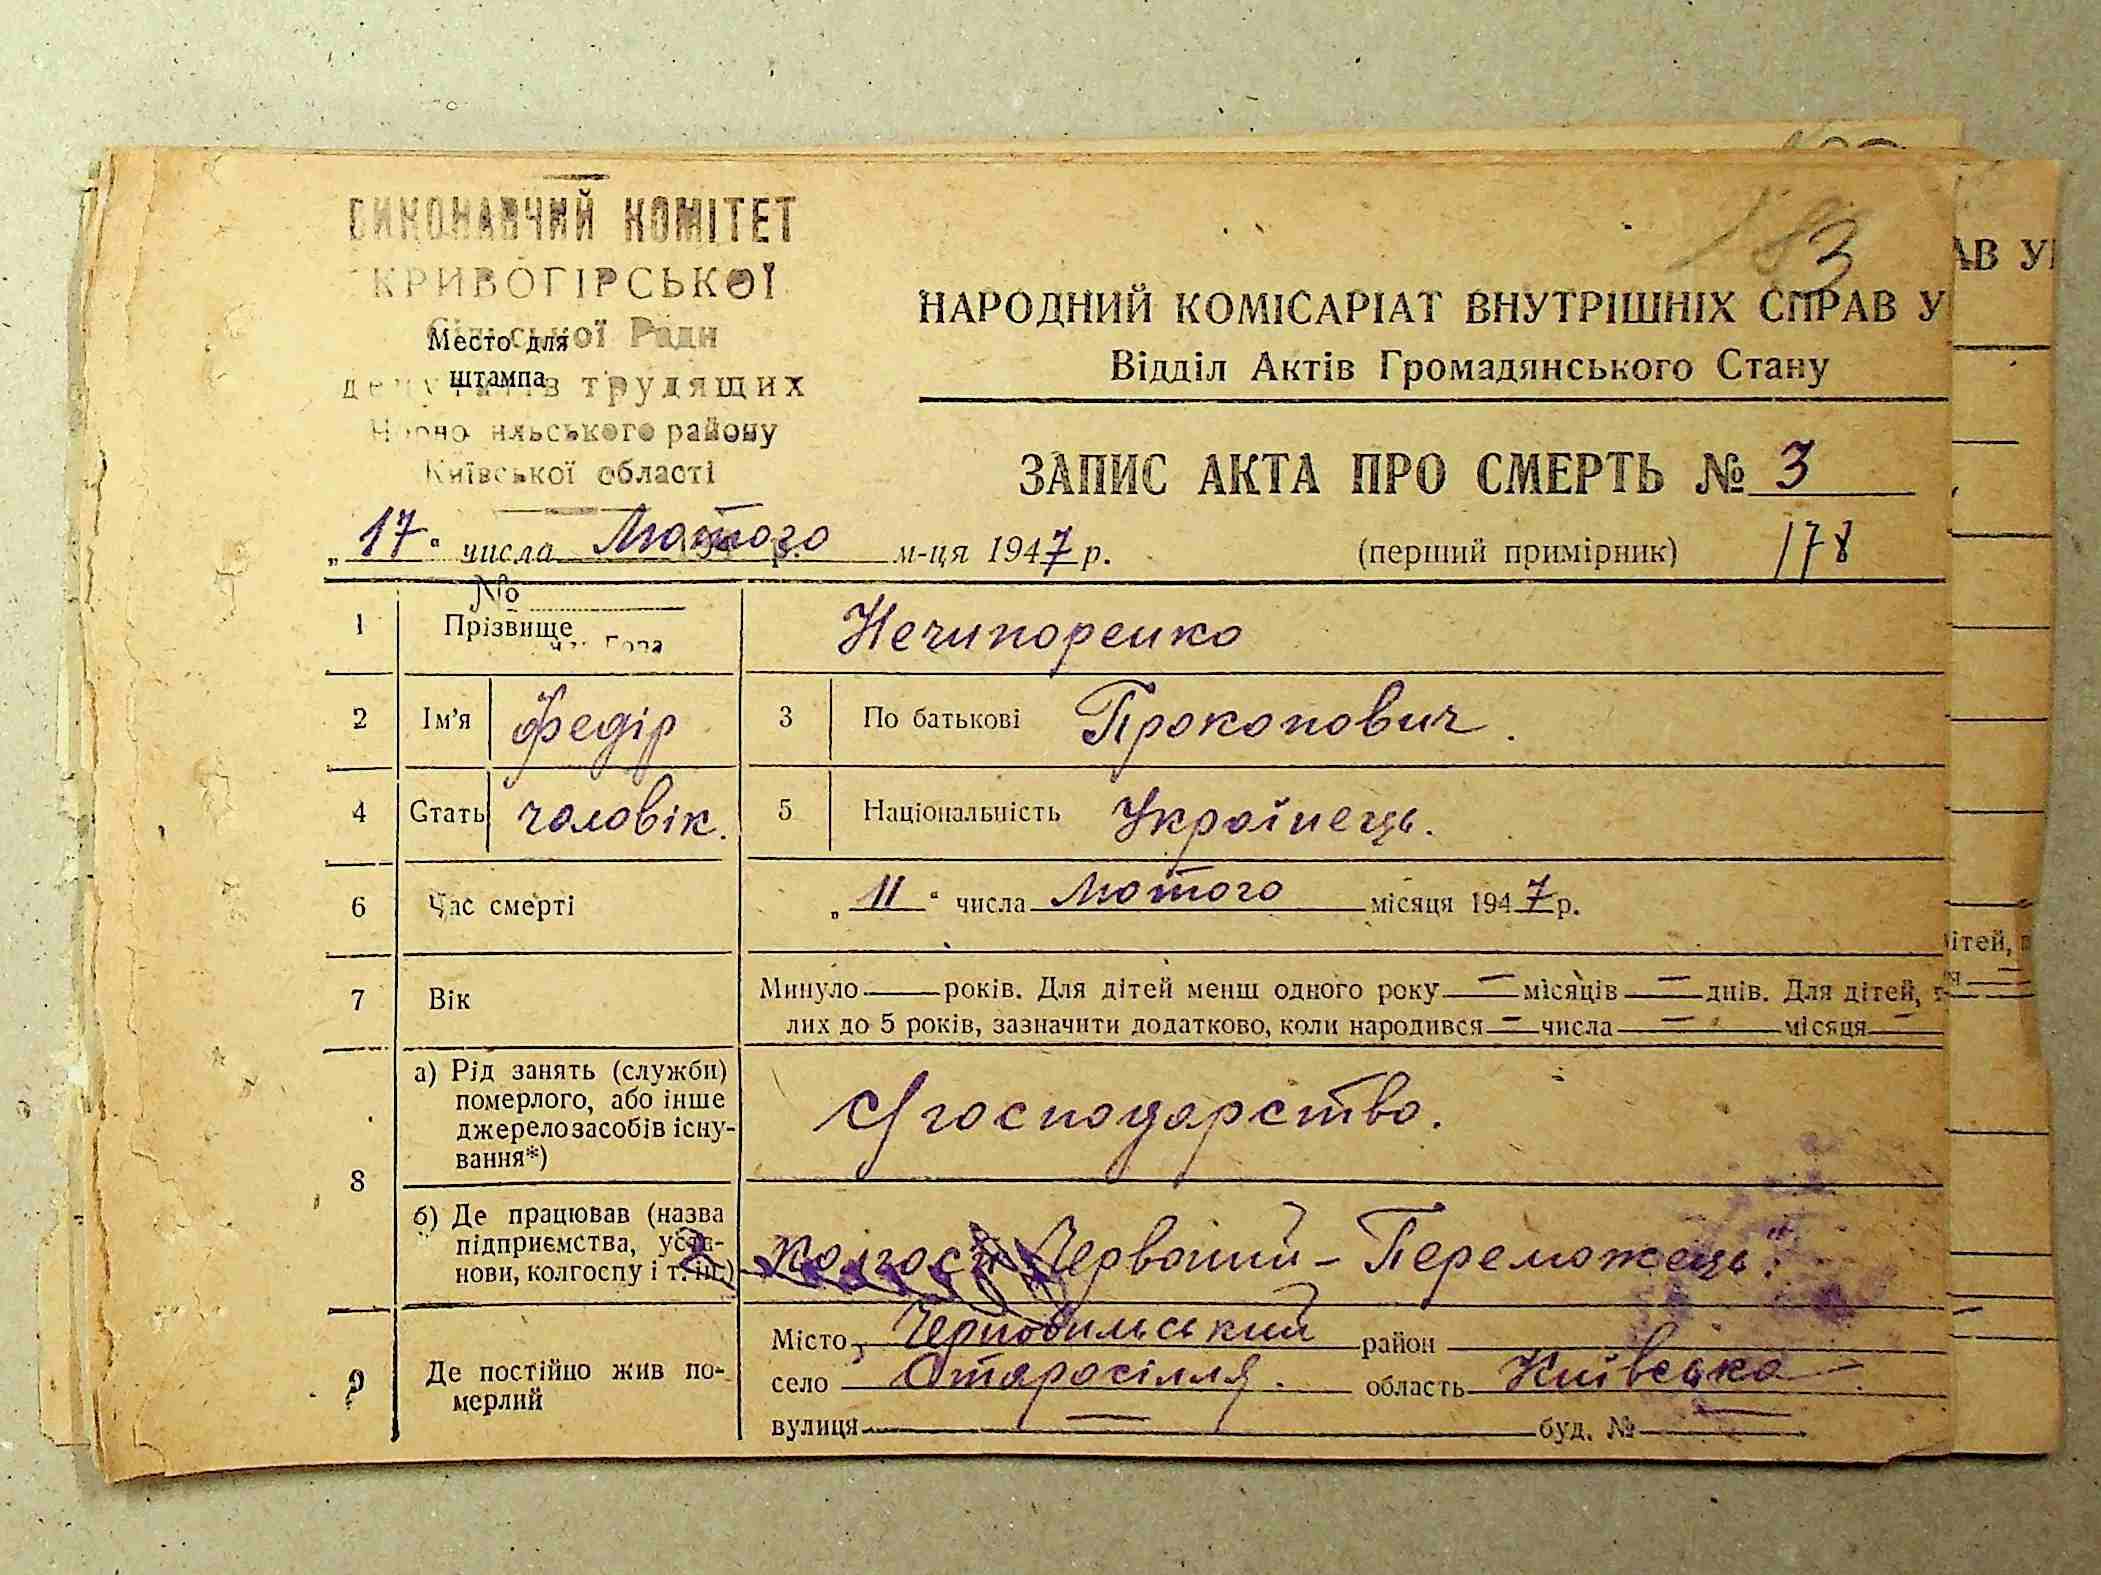 ВИКОНАВЧИЙ КОМІТЕТ
КРИВОГІРСЬКОЇ
Сільської Ради
Место для
штампа
депутатів трудящих
Чорнобильського району
Київської області
183
НАРОДНИЙ КОМІСАРІАТ ВНУТРІШНІХ СПРАВ У
Відділ Актів Громадянського Стану
ЗАПИС АКТА ПРО СМЕРТЬ № 3
„17“ числа Лютого м-ця 1947 р. (перший примірник) 178
№
1 Прізвище Нечипоренко
2 Ім’я Федір 3 По батькові Прокопович.
4 Стать чоловік. 5 Національність Українець.
6 Час смерті „11“ числа Лютого місяця 1947 р.
7 Вік Минуло — років. Для дітей менш одного року — місяців — днів. Для дітей,
лих до 5 років, зазначити додатково, коли народився — числа — місяця —
8 а) Рід занять (служби)
померлого, або інше
джерело засобів існу-
вання*)
С/господарство.
б) Де працював (назва
підприємства, уста-
нови, колгоспу і т. ін.)
Колгосп „Червоний-Переможець“.
9 Де постійно жив по-
мерлий
Місто, Чернобильський район
село Старосілля. область Київська
вулиця — буд. № —
АВ У
ітей,